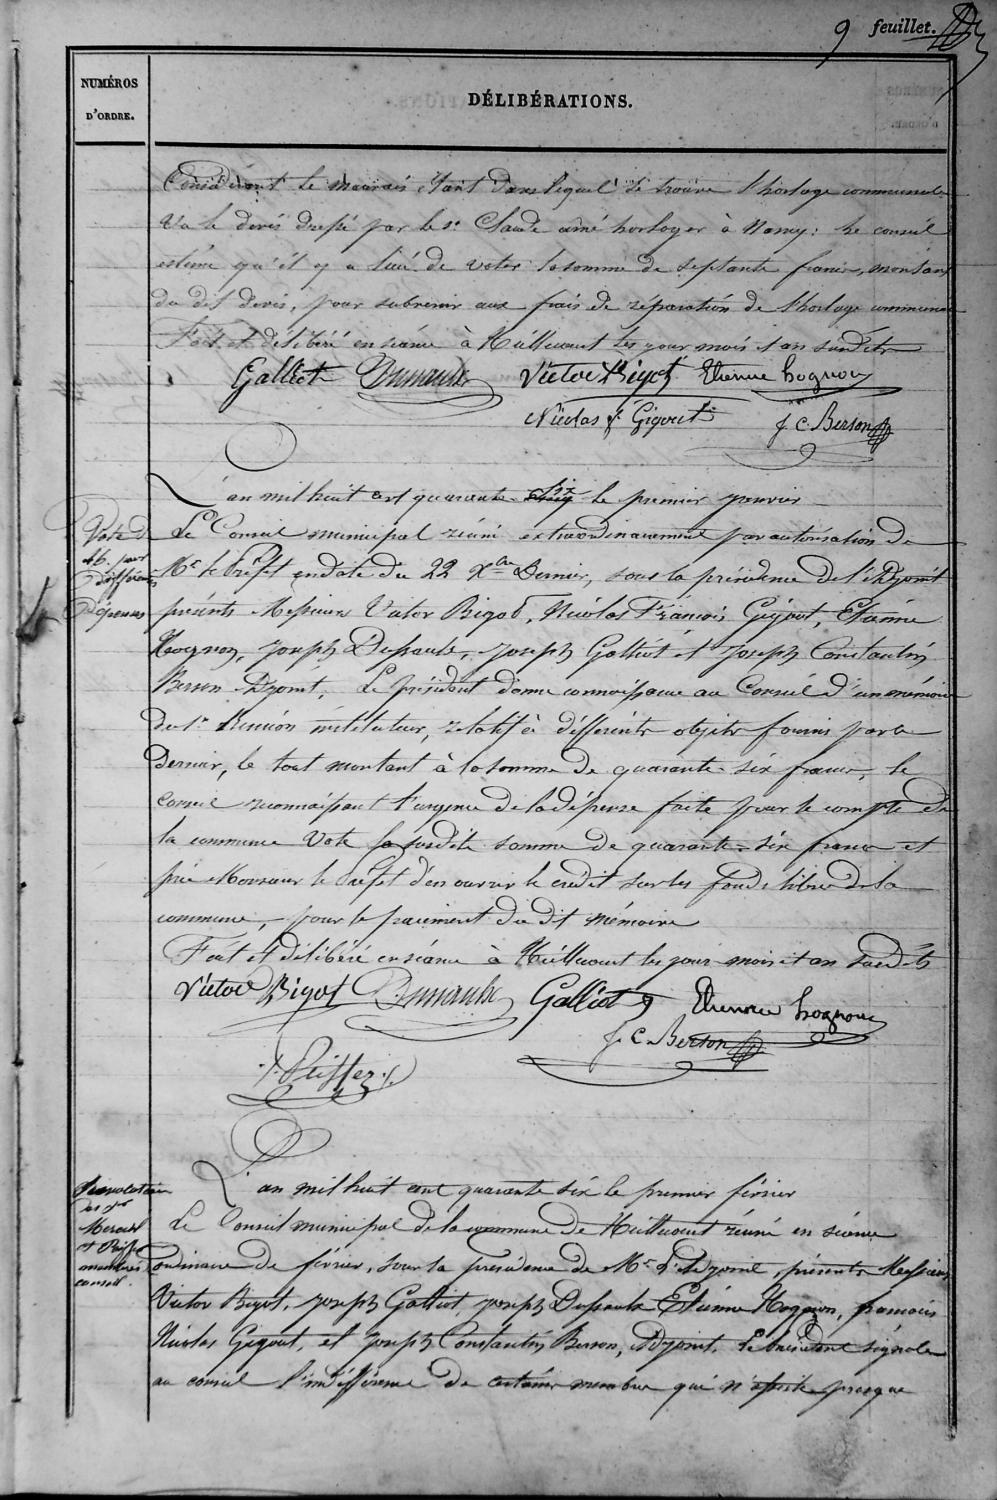 9 feuillet.
NUMÉROS
D'ORDRE.
DÉLIBÉRATIONS.
Considérant le mauvais étant dans lequel se trouve l'horloge communale
Vu le devis dressé par le Sr Claude ainé horloger à Nancy: le conseil
estime qu'il y a lieu de voter la somme de septante francs, montant
du dit devis, pour subvenir aux frais de réparation de l'horloge communale
Fait et délibéré en séance à les jour mois et an susdits
Galliot Victor Bigot Etienne hognon
Nicolas f. Gigout J. C. Berson
L'an mil huit cent quarante six le premier janvier
Vote de
46 pour
différentes
Dépenses
Le Conseil municipal réuni extraordinairement par autorisation de
Mr le Préfet en date du 22 Xbre Dernier, sous la présidence de l'Adjoint
présents Messieurs Victor Bigot, Nicolas François Gigout, Etienne
Hognon, Joseph Joseph Galliot et Joseph Constantin
Berson Adjoint, Le président donne connaissance au Conseil d'un mémoire
du Sr instituteur, relatif à différents objets fournis par ce
Dernier, le tout montant à la somme de quarante-six francs, le
Conseil reconnaissant l'urgence de la dépense faite pour le compte de
la commune Vote la susdite somme de quarante-six francs et
prie Monsieur le Préfet d'en ouvrir le crédit sur les fonds libres de la
commune, pour le paiement du dit mémoire
Fait et délibéré en séance à les jour mois et an susdits
Victor Bigot Galliot Etienne hognon
J. C. Berson
L'an mil huit cent quarante six le premier février
membres
conseil.
Le Conseil municipal de la commune de réuni en séance
ordinaire de février, sous la présidence de Mr l'Adjoint, présents Messieurs
Victor Bigot, Joseph Galliot, Joseph Etienne Hognon, françois
Nicolas Gigout, et Joseph Constantin Berson, Adjoint. Le président signale
au conseil l'indifférence de certains membres qui n'assiste presque